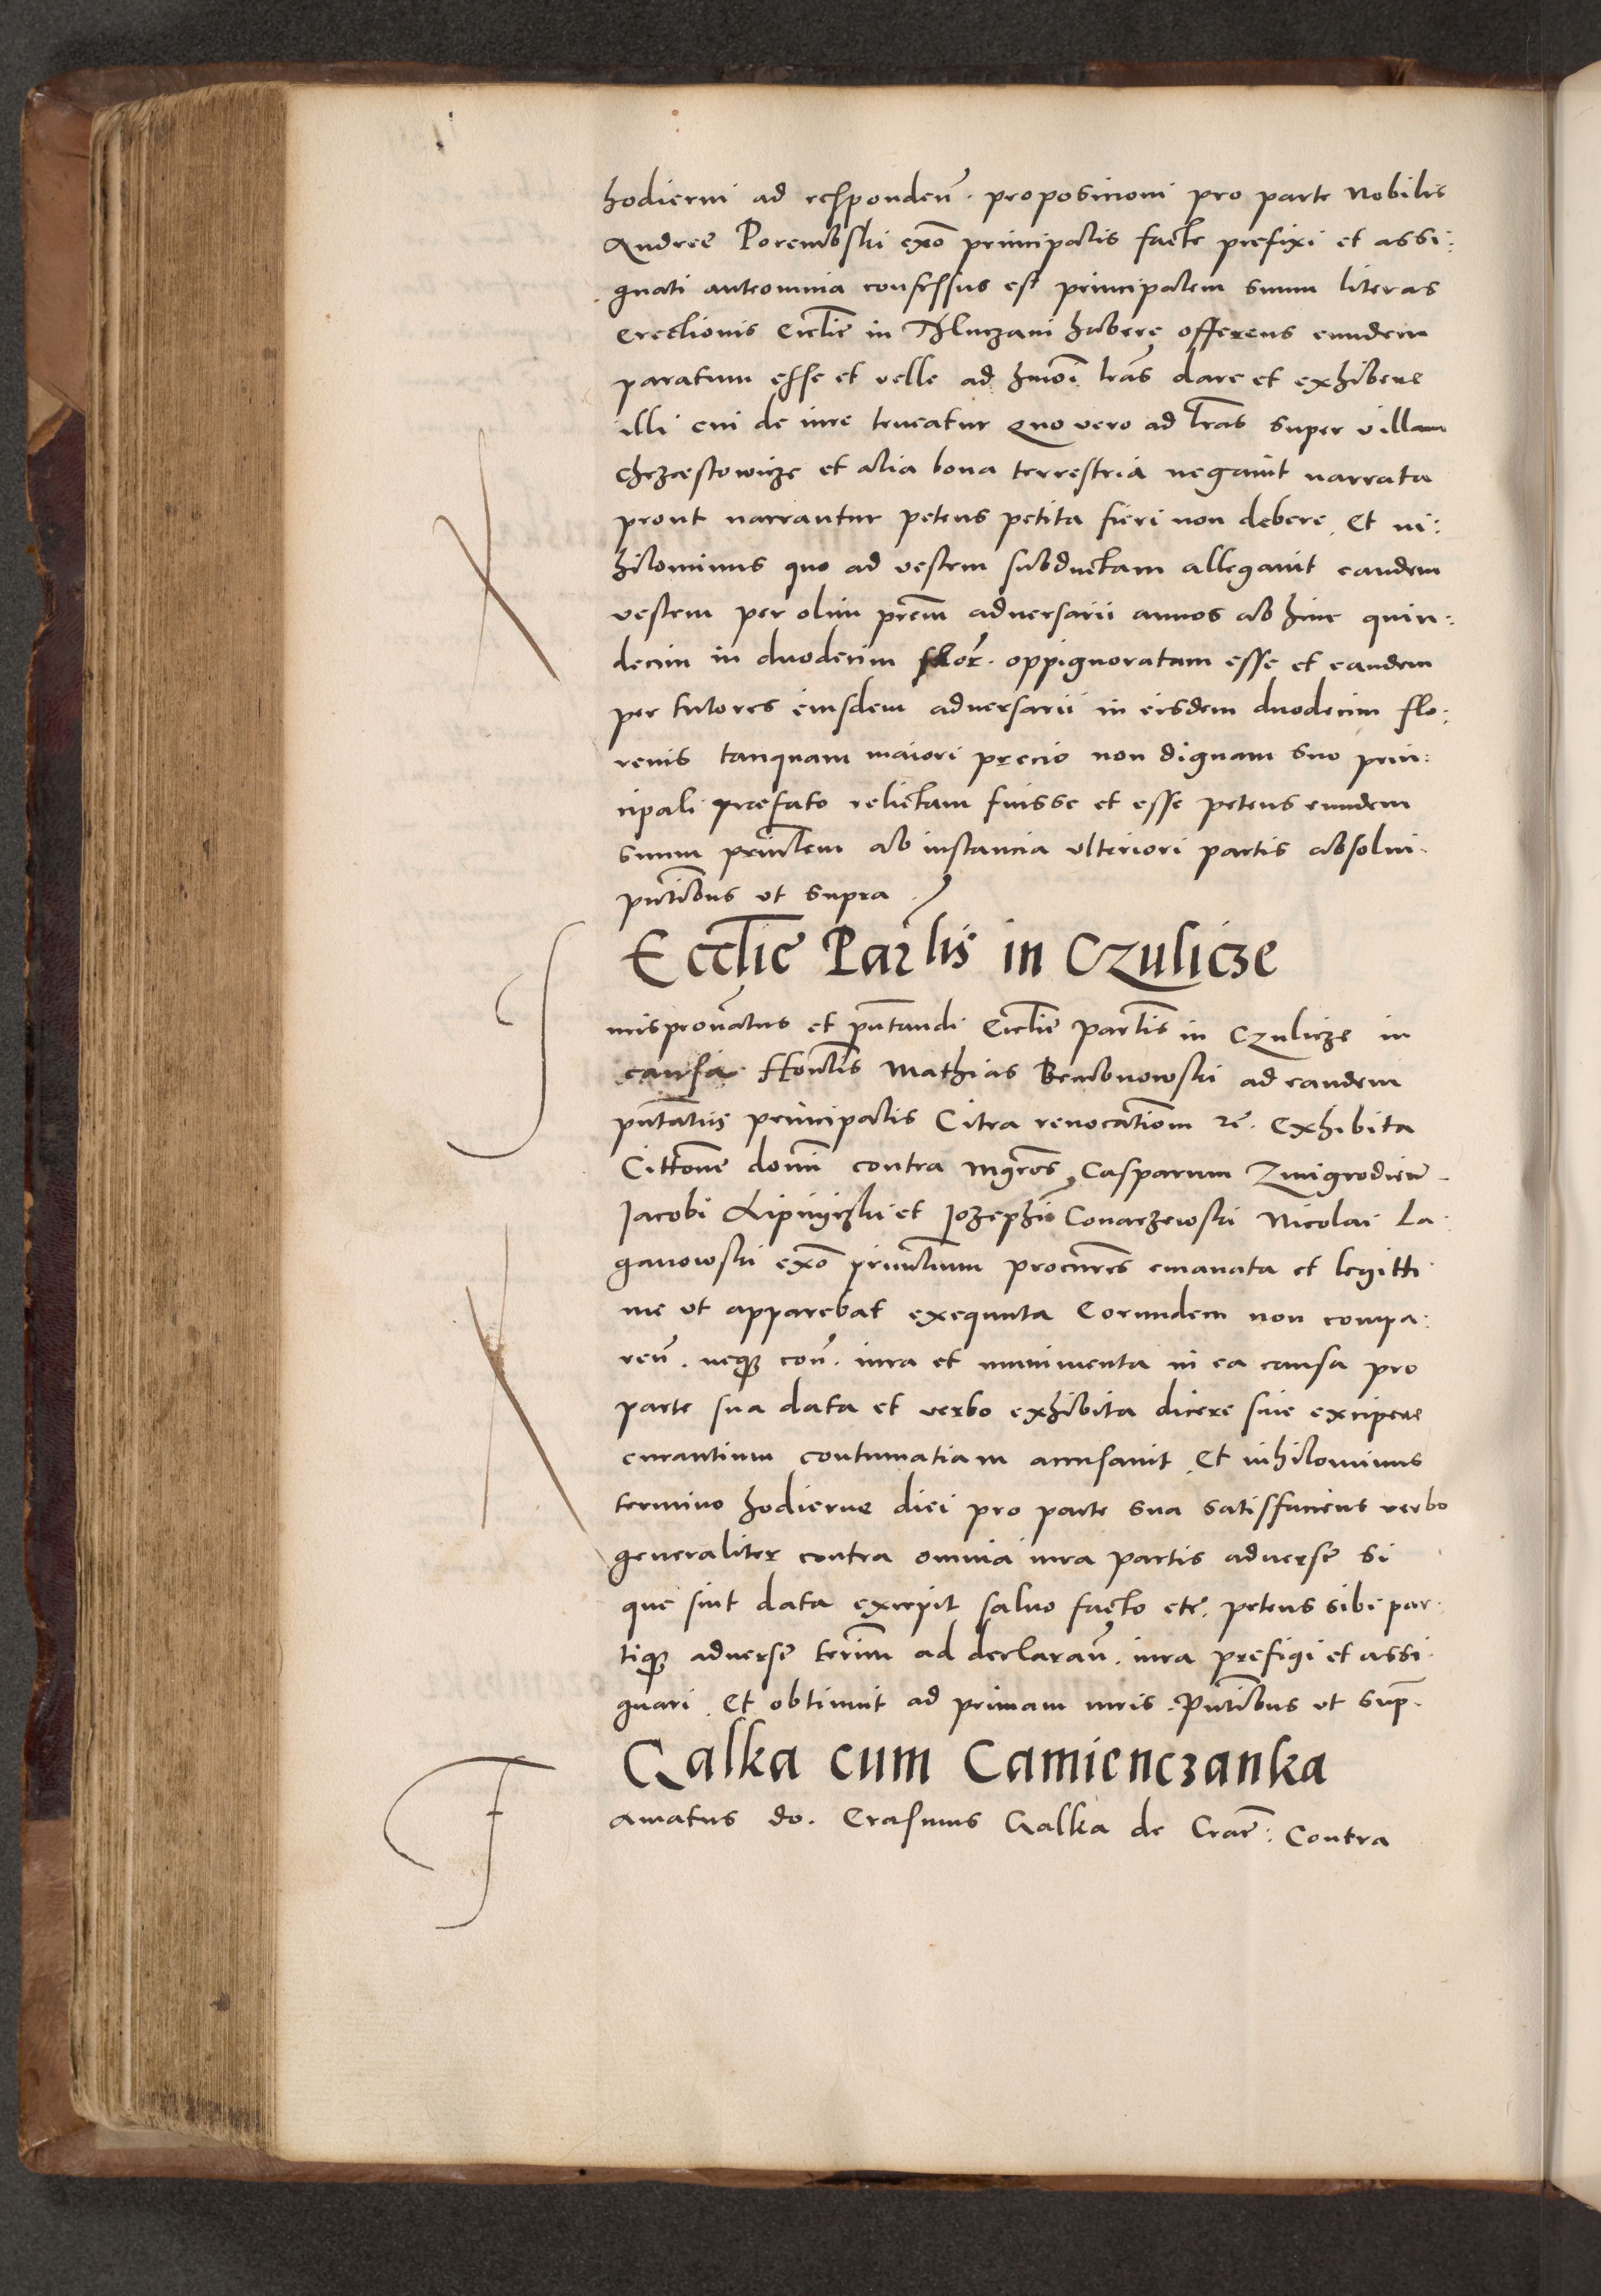 hodierni ad respondeñ. proposicioni pro parte Nobilis
Andree Porembski exõ principalis facte prefixi et assi:
gnati anteomnia confessus est principalem suum literas
erectionis Ecclie in Thluczani habere offerens eundem
paratum esse et velle ad hmoi lras dare et exhibere
illi cui de iure teneatur Quo vero ad lras super villam
Chrzastowicze et alia bona terrestria negauit narrata
prout narrantur petens petita fieri non debere. Et ni:
hilominus quo ad vestem subductam allegauit eandem
vestem per olim prem aduersarii annos ab hinc quin:
decim in duodecim flor. oppignoratam esse et eandem
per tutores eiusdem aduersarii in eisdem duodecim flo:
renis tanquam maiori precio non dignam suo prin:
cipali præfato relictam fuisse et esse petens eundem
suum princlem ab instancia vlteriori partis absolui.
pntibus vt supra
Ecclie Parlis in Czulicze
J
urispronatus et pntandi Ecclie parlis in Czulicze in
causa Honlis Mathias Bembnowski ad eandem
pntatus principalis Citra reuocationem rc. Exhibita
Cittone domi contra Mgros Casparum Zmigrodien.
Jacobi Lipnyczki et Jozephi Conarzewski Nicolai La.
ganowski exõ princlium procures emanata et legitti
me vt apparebat exequuta Eorundem non compa:
reñ. neque coñ. iura et munimenta in ea causa pro
parte sua data et verbo exhibita dicere siue excipere
curantium contumatiam accusauit. Et nihilominus
termino hodierne diei pro parte sua satisfaciens verbo
generaliter contra omnia iura partis aduerse si
que sint data excepit saluo facto etc. petens sibi par.
tique aduerse termi ad declarañ. iura prefigi et assi.
gnari. Et obtinuit ad primam iuris. Pntibus vt sup.
Galka cum Camienczanka
F
amatus do. Erasmus Galka de Crac: Contra